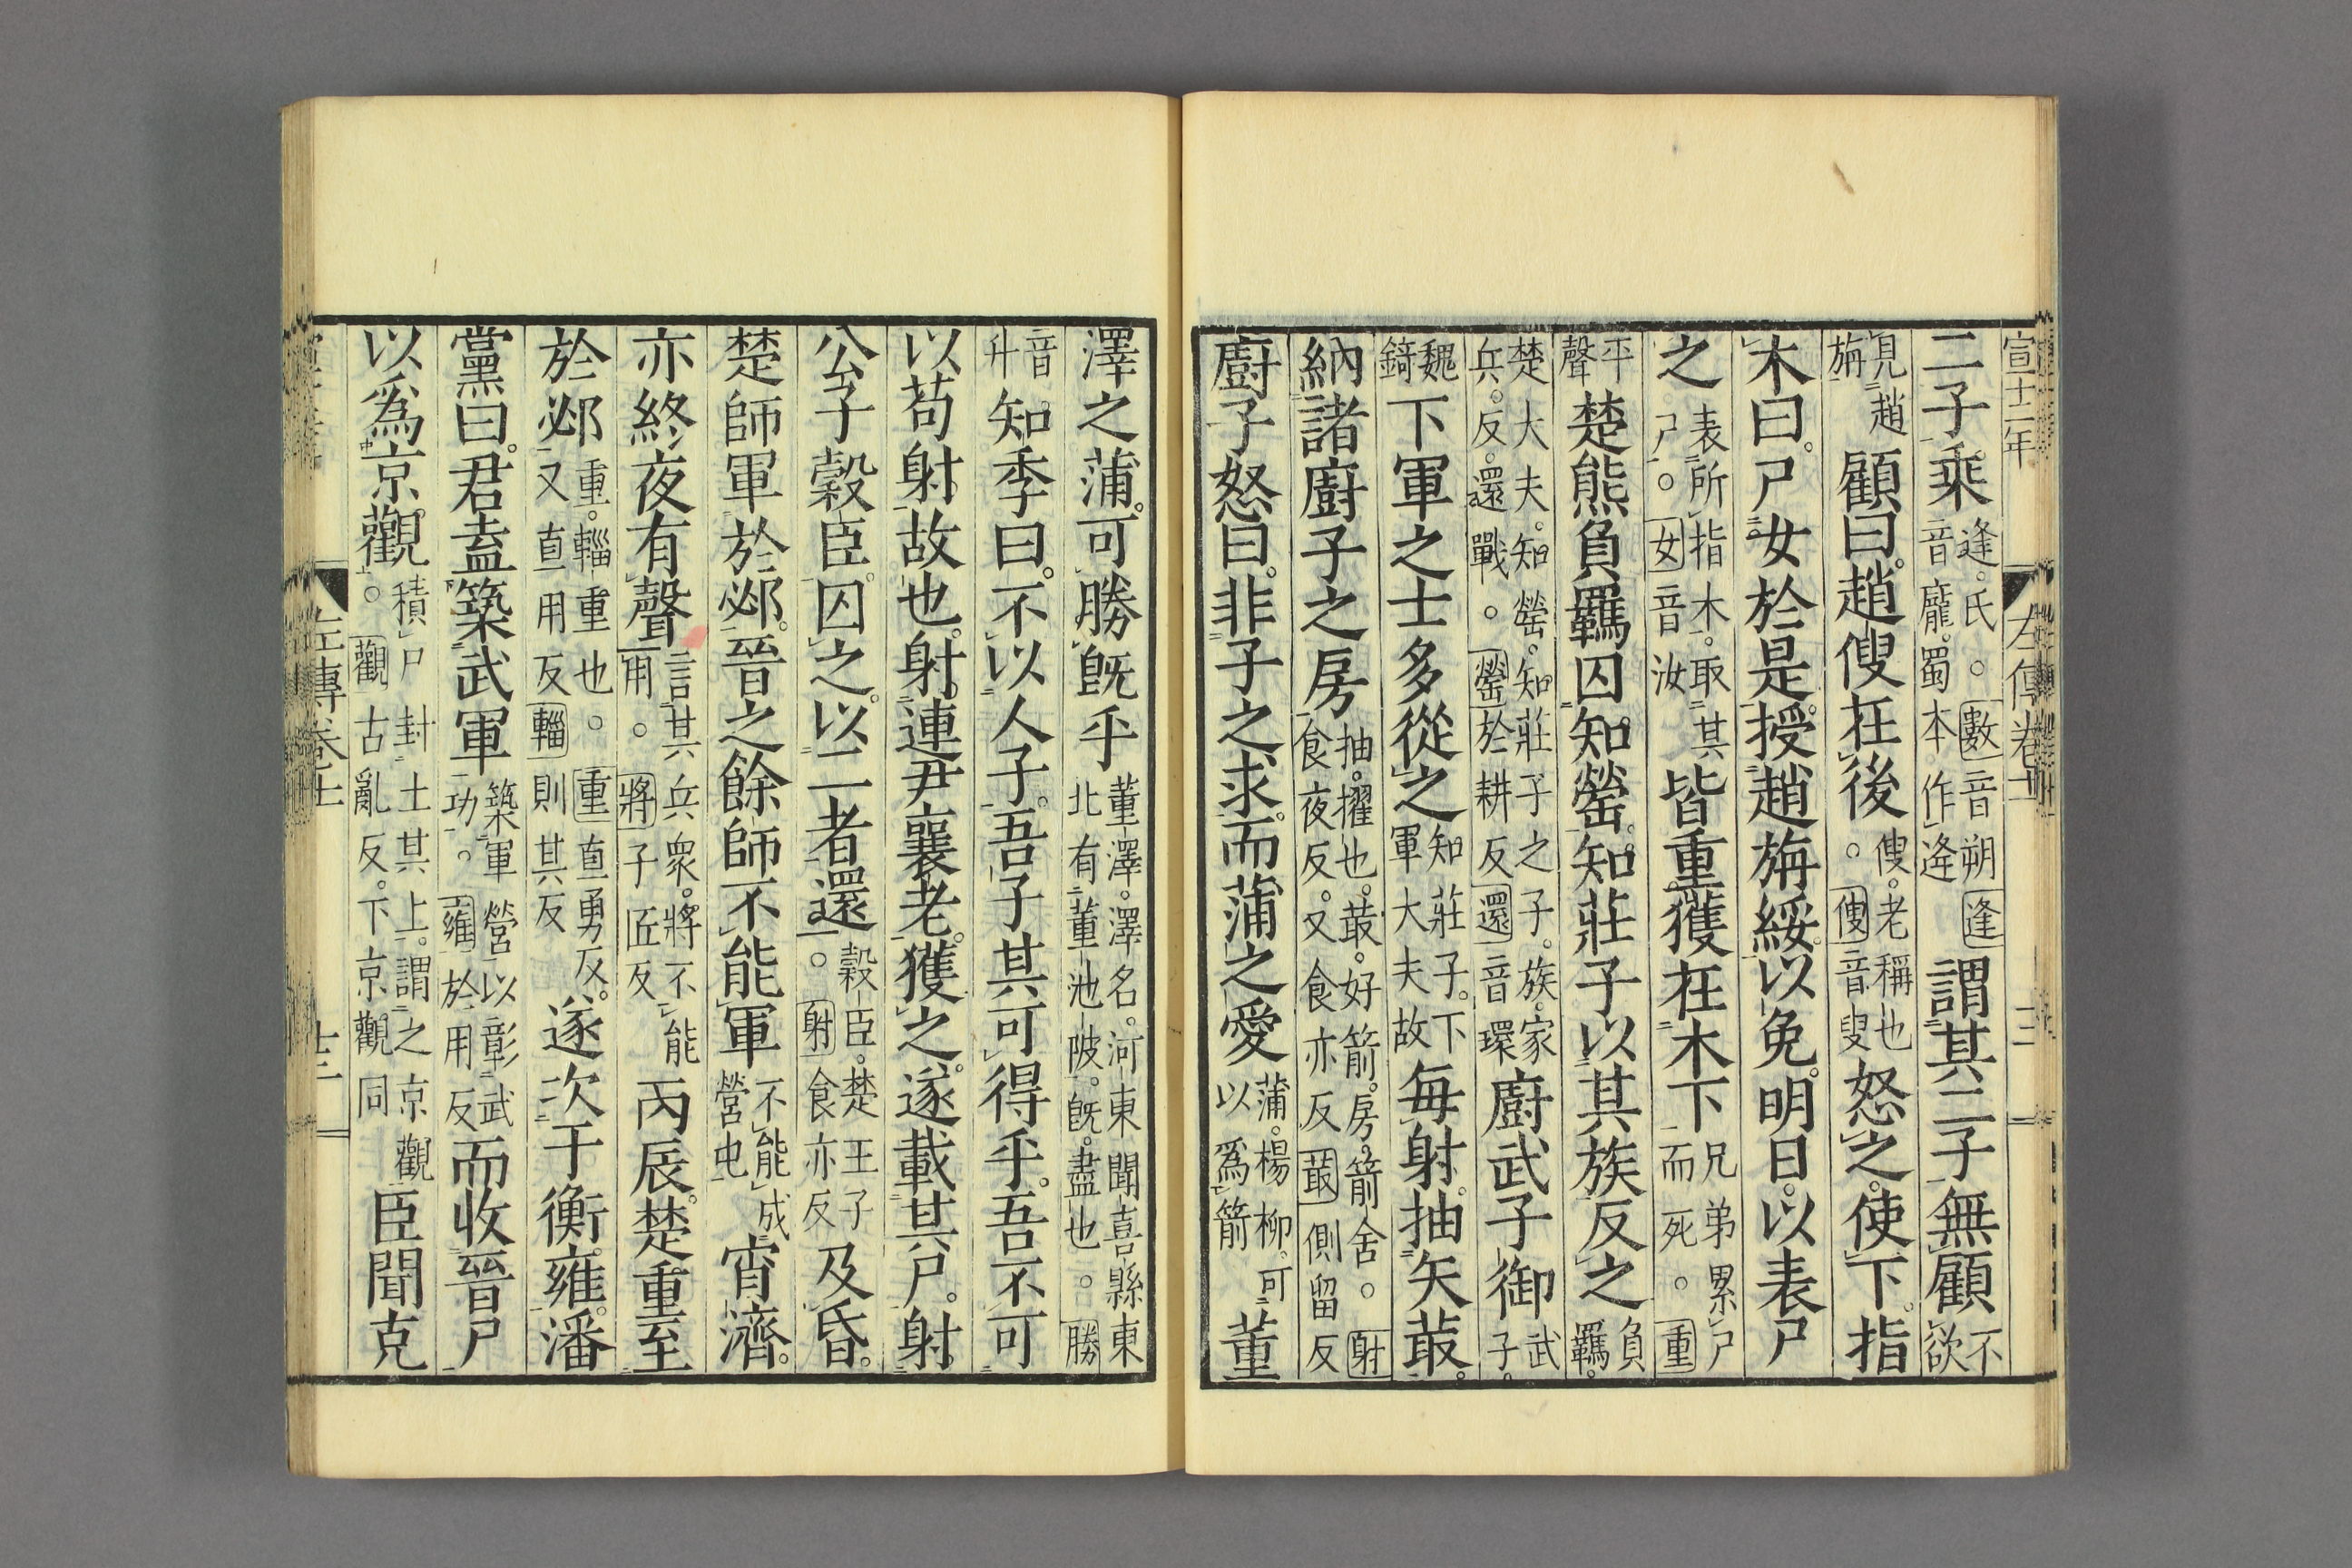 宣十二年
左傳卷十一
二子乘逢。氏。○數音朔逢音龐。蜀本作逄謂其二子無顧不欲
見趙旃顧曰。趙傁在後傁。老稱也○傁音叟怒之。使下。指
木曰。尸女於是。授趙旃綏。以免。明日。以表尸
之表所指木。取其尸。○女音汝皆重獲在木下兄弟累尸而死。○重
平聲楚熊負羈囚知罃。知莊子以其族反之負羈。
楚大夫。知罃。知莊子之子。族。家兵。反。還戰。○罃於耕反還音環廚武子御武子。
魏錡下軍之士多從之知莊子。下軍大夫故每射。抽矢菆。
納諸廚子之房抽。擢也。菆。好箭。房。箭舍。○射食夜反。又食亦反菆側留反
廚子怒曰。非子之求。而蒲之愛蒲。楊柳。可以爲箭董
澤之蒲。可勝旣乎董澤。澤名。河東聞喜縣東北有董池陂。旣。盡也。○勝
音升知季曰。不以人子。吾子其可得乎。吾不可
以苟射故也。射。連尹襄老。獲之。遂載其尸。射
公子穀臣。囚之。以二者還穀臣。楚王子○射食亦反及昏。
楚師軍於邲。晉之餘師不能軍不能成營屯宵濟。
亦終夜有聲言其兵衆。將不能用。○將子匠反丙辰。楚重至
於邲重。輜重也。○重直勇反。又直用反輜則其反遂次于衡雍。潘
黨曰。君盍築武軍築軍營以彰武功。○雍於用反而收晉尸
以爲京觀。積尸封土其上。謂之京觀○觀古亂反。下京觀同臣聞克
左傳卷十一
十三